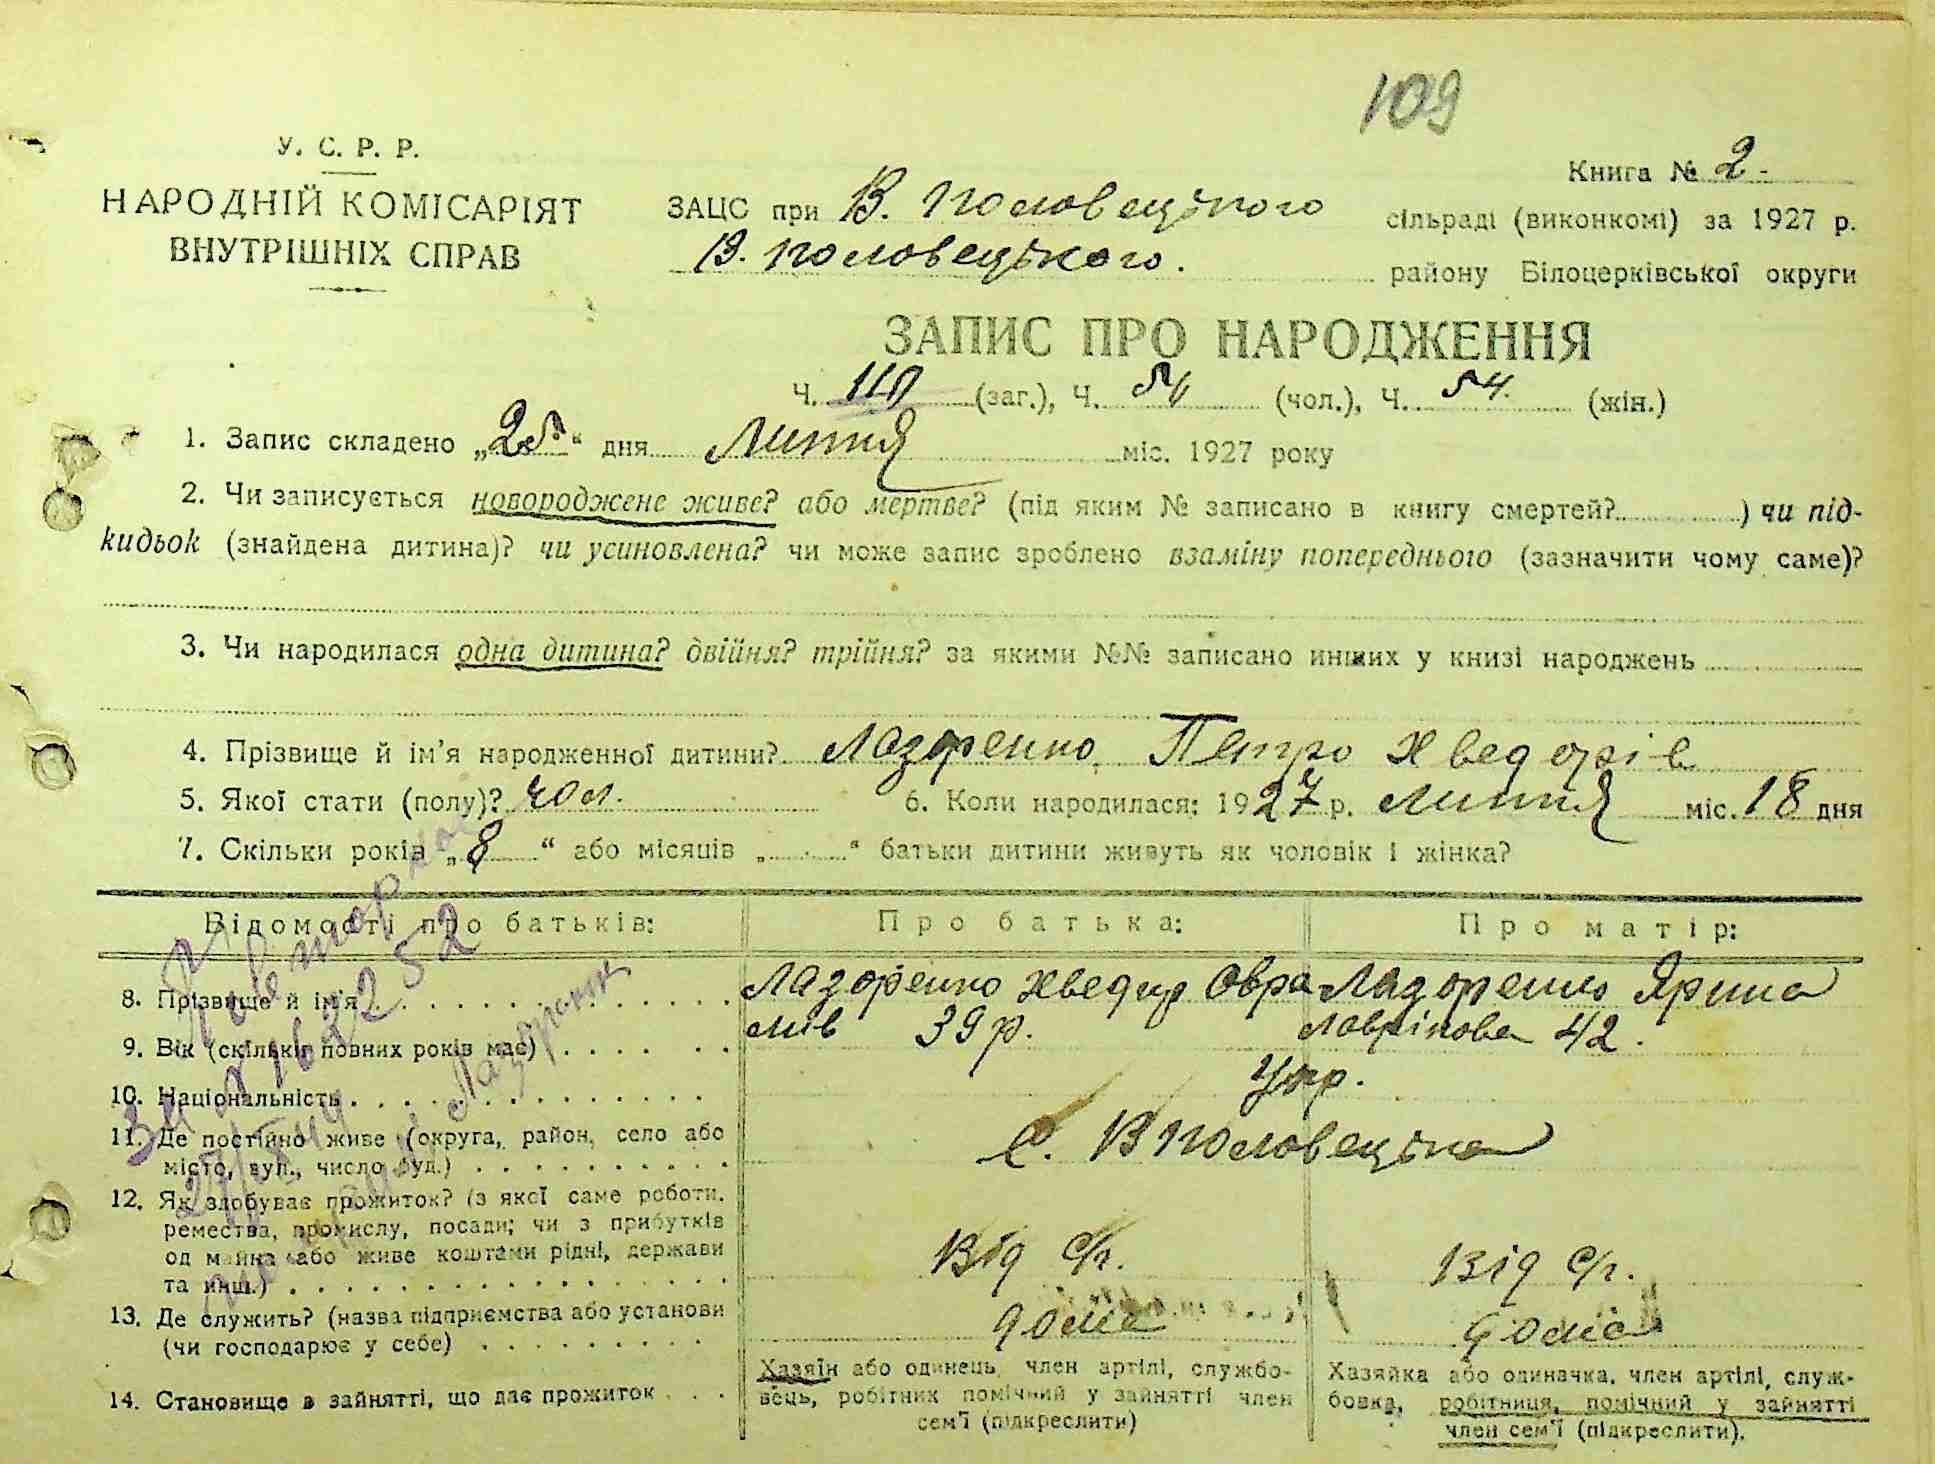 109
У. С. Р. Р.
НАРОДНІЙ КОМІСАРІЯТ
ВНУТРІШНІХ СПРАВ
Книга № 2 -
ЗАЦС при В. Половецького сільраді (виконкомі) за 1927 р.
В. Половецького. району Білоцерківської округи
ЗАПИС ПРО НАРОДЖЕННЯ
Ч. 110 (заг.), Ч. 54 (чол.), Ч. 54. (жін.)
1. Запис складено „25“ дня Липня міс. 1927 року
2. Чи записується новороджене живе? або мертве? (під яким № записано в книгу смертей? ) чи під-
кидьок (знайдена дитина)? чи усиновлена? чи може запис зроблено взаміну попереднього (зазначити чому саме)?
3. Чи народилася одна дитина? двійня? трійня? за якими №№ записано инших у книзі народжень
4. Прізвище й ім'я народженної дитини? Лазоренко Петро Хведорів
5. Якої стати (полу)? чол. 6. Коли народилася: 1927 р. Липня міс. 18 дня
7. Скільки років „8“ або місяців „ “ батьки дитини живуть як чоловік і жінка?
Відомості про батьків: Про батька: Про матір:
8. Прізвище й ім'я Лазоренко Хведир Овра Лазоренко Ярина
9. Вік (скільки повних років має) мів 39 р. Лаврінова 42.
10. Національність Укр.
11. Де постійно живе (округа, район, село або
місто, вул., число буд.) с. В Половецьке
12. Як здобуває прожиток? (з якої саме роботи,
ремества, промислу, посади; чи з прибутків
од майна або живе коштами рідні, держави
та инш.) Від с/г. Від с/г.
13. Де служить? (назва підприємства або установи
(чи господарює у себе) дома дома
14. Становище в зайнятті, що дає прожиток
Хазяїн або одинець, член артілі, службо-
вець, робітник помічний у зайнятті член
сем'ї (підкреслити)
Хазяйка або одиначка, член артілі, служ-
бовка, робітниця, помічний у зайнятті
член сем'ї (підкреслити).
Повторное
162252
Лазоренк